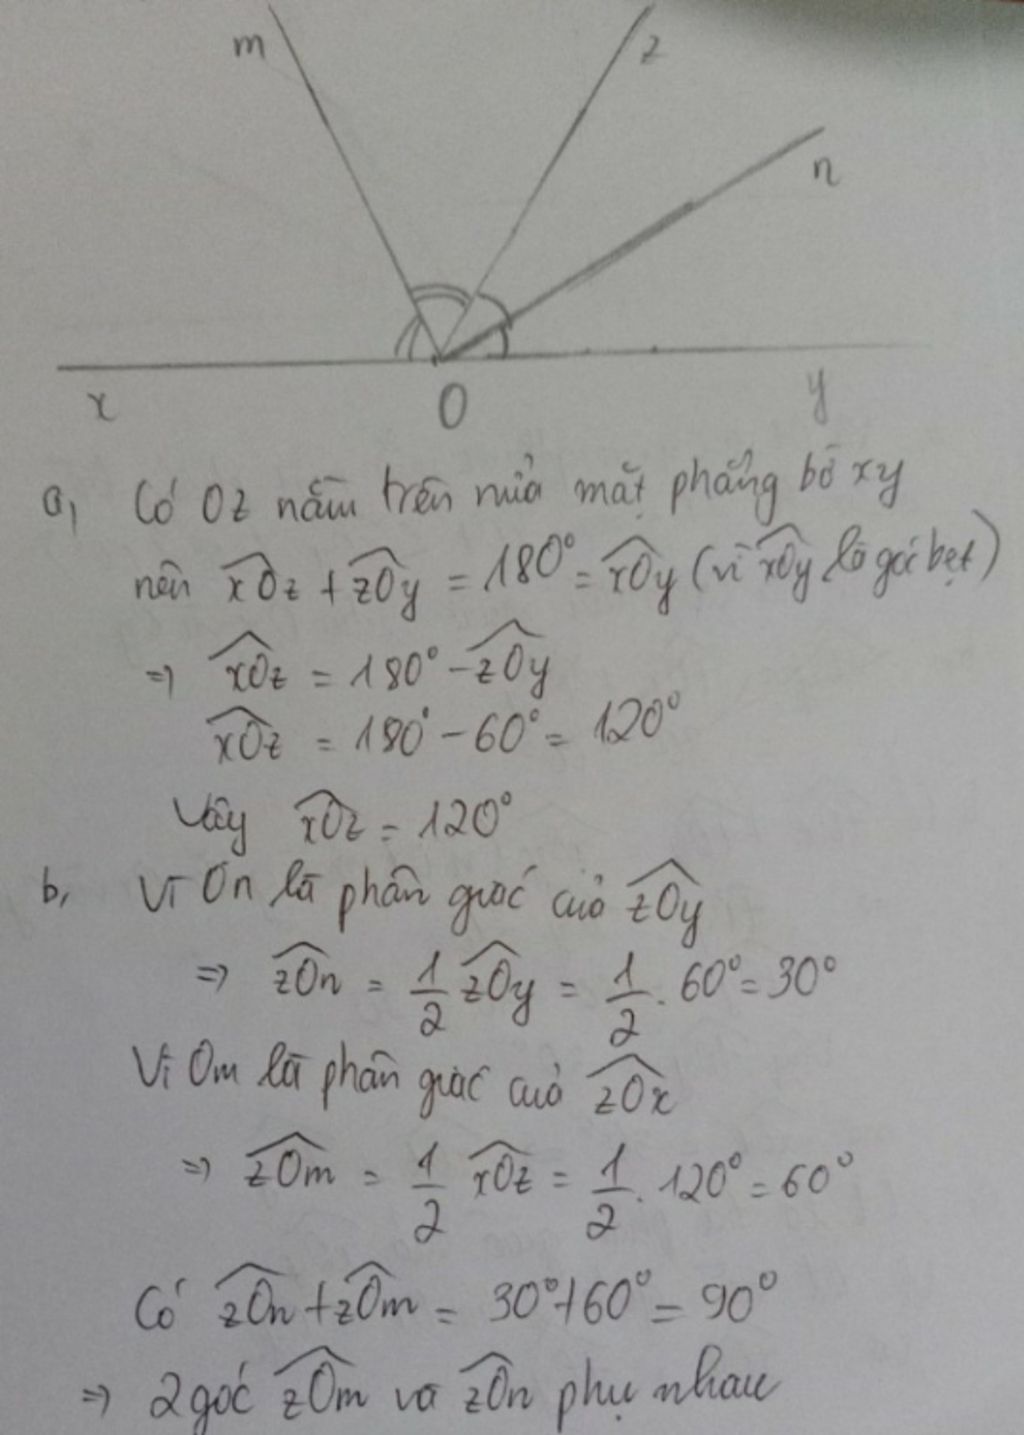 m
z
n
x
O
y
a, Có Oz nằm trên nửa mặt phẳng bờ xy
nên xOz + zOy = 180° = xOy (vì xOy là góc bẹt)
=> xOz = 180° - zOy
xOz = 180° - 60° = 120°
Vậy xOz = 120°
b, Vì On là phân giác của zOy
=> zOn = 1/2 zOy = 1/2 . 60° = 30°
Vì Om là phân giác của zOx
=> zOm = 1/2 xOz = 1/2 . 120° = 60°
Có zOn + zOm = 30° + 60° = 90°
=> 2 góc zOm và zOn phụ nhau